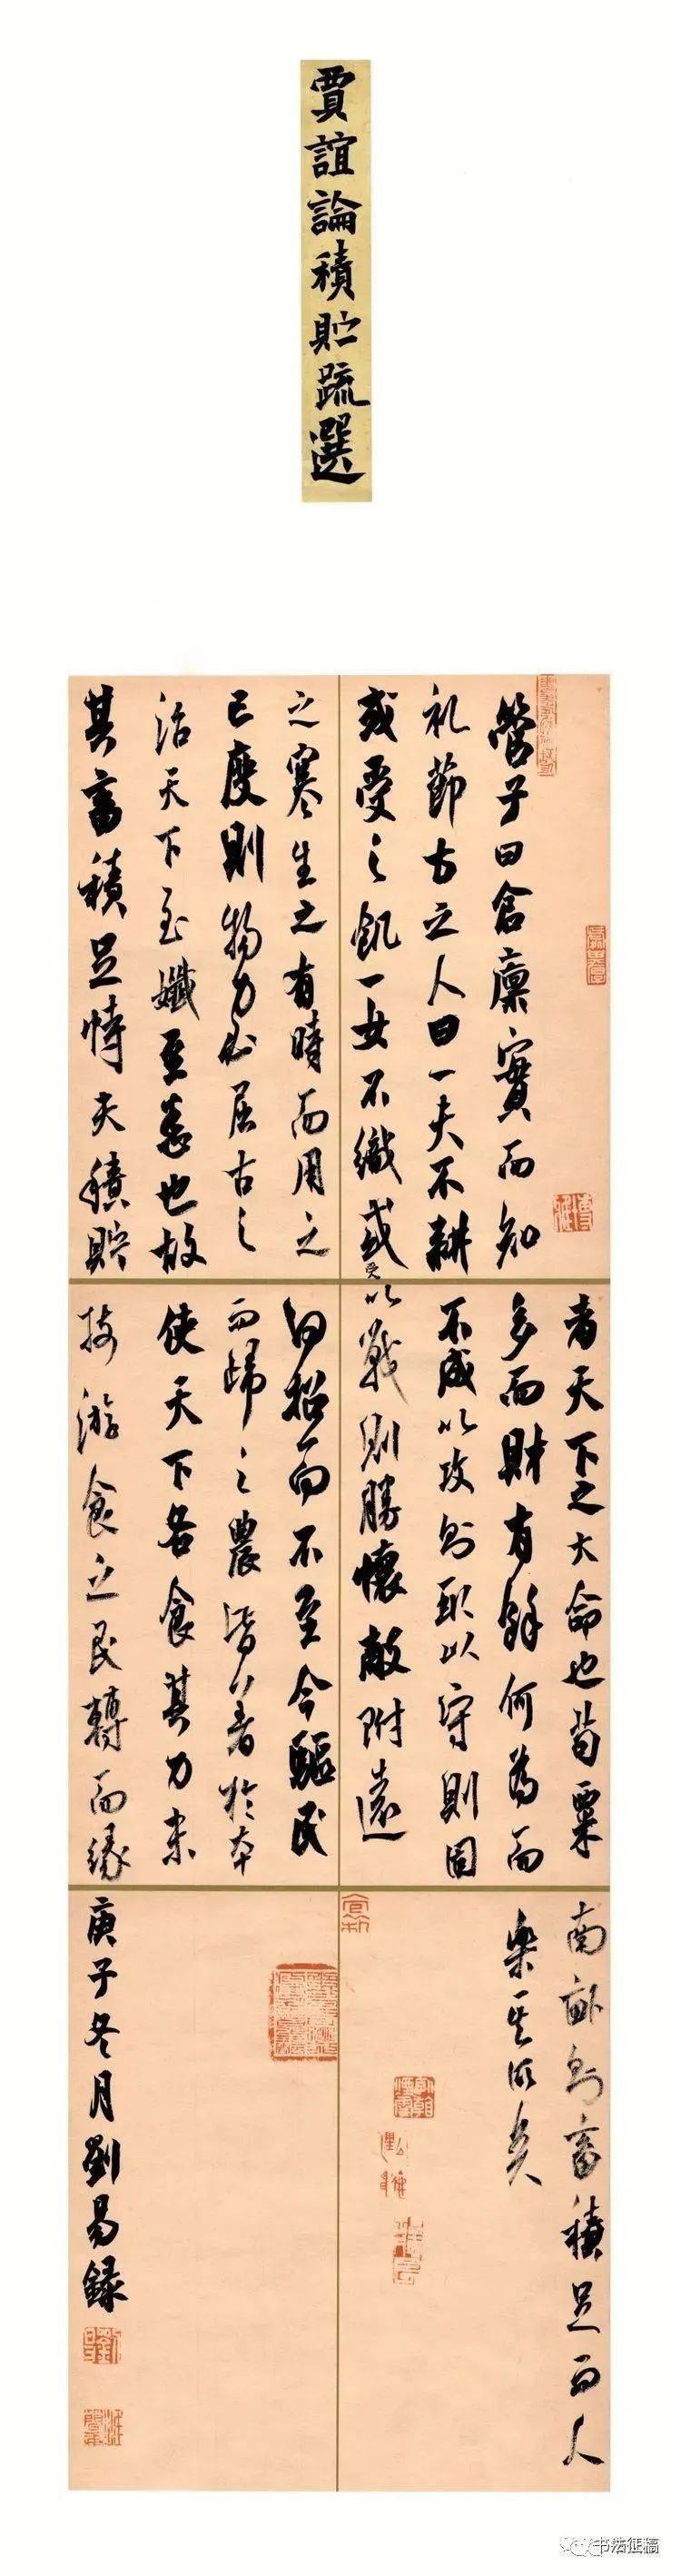 賈誼論積貯疏選
管子曰倉廩實而知
礼節古之人曰一夫不耕
或受之飢一女不織或受
之寒生之有時而用之
亡度則物力必屈古之
治天下至孅至悉也故
其畜積足恃夫積貯
者天下之大命也苟粟
多而財有餘何為而
不成以攻則取以守則固
以戰則勝懷敵附遠
何招而不至今驅民
而歸之農皆著於本
使天下各食其力末
技游食之民轉而緣
南畝則畜積足而人
樂其所矣
庚子冬月劉易錄
书法征稿